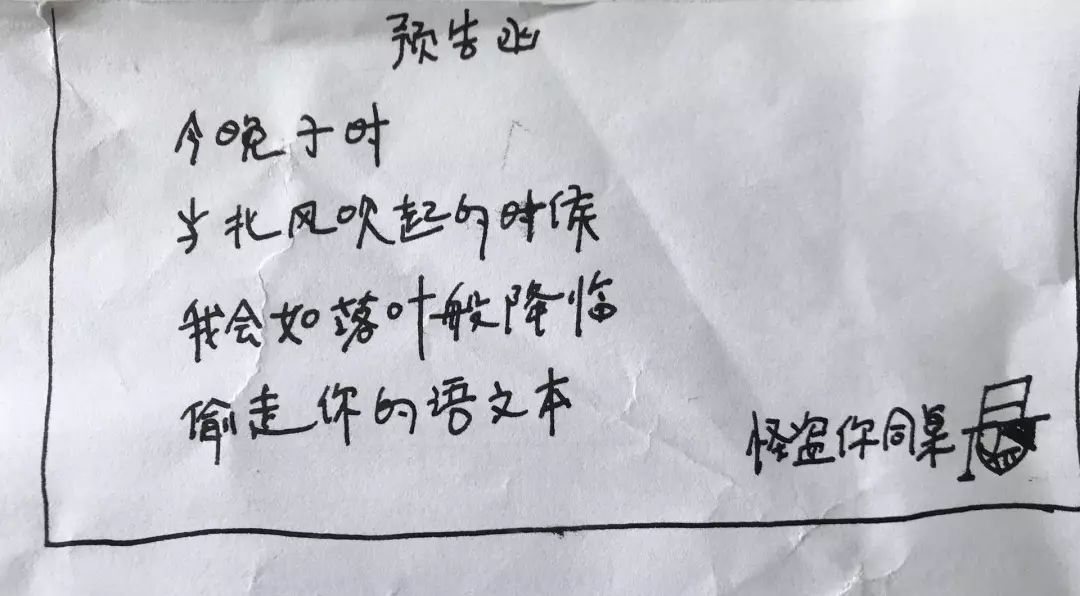 预告函
今晚子时
当北风吹起的时候
我会如落叶般降临
偷走你的语文本
怪盗你同桌